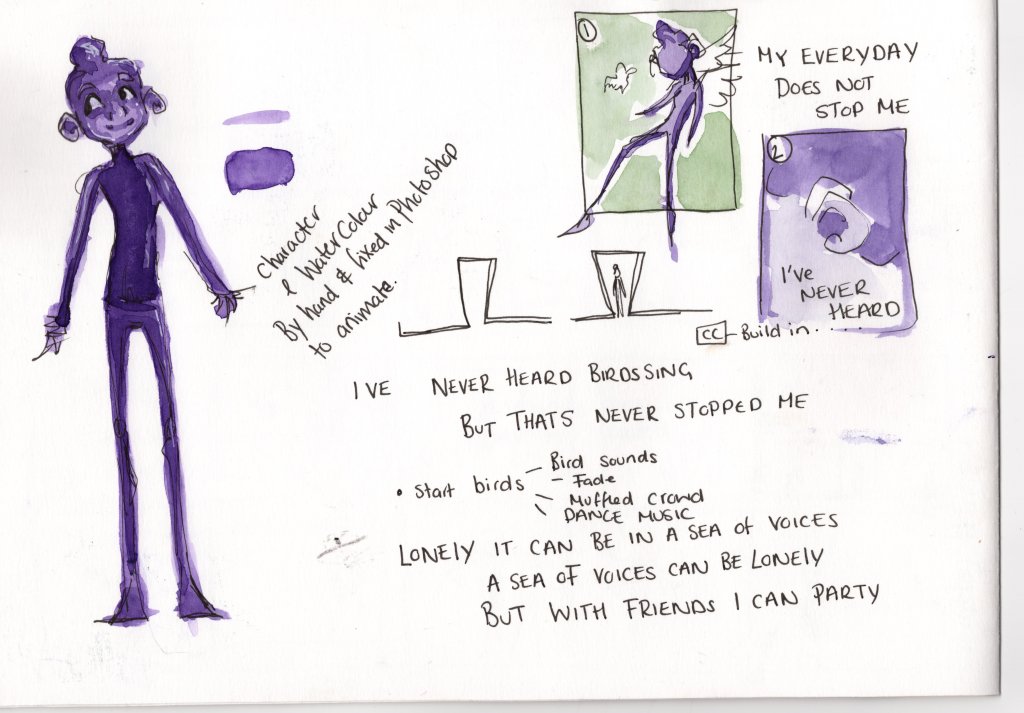 1
MY EVERYDAY
DOES NOT
STOP ME
2
I've
NEVER
HEARD
CC - Build in.....
Character
& WaterColour
By hand & fixed in Photoshop
to animate.
I VE NEVER HEARD BIRDSSING
BUT THATS NEVER STOPPED ME
• Start birds
- Bird sounds
- Fade
\ Muffled crowd
\ DANCE MUSIC
LONELY IT CAN BE IN A SEA Of VOICES
A SEA OF VOICES CAN BE LONELY
BUT WITH FRIENDS I CAN PARTY